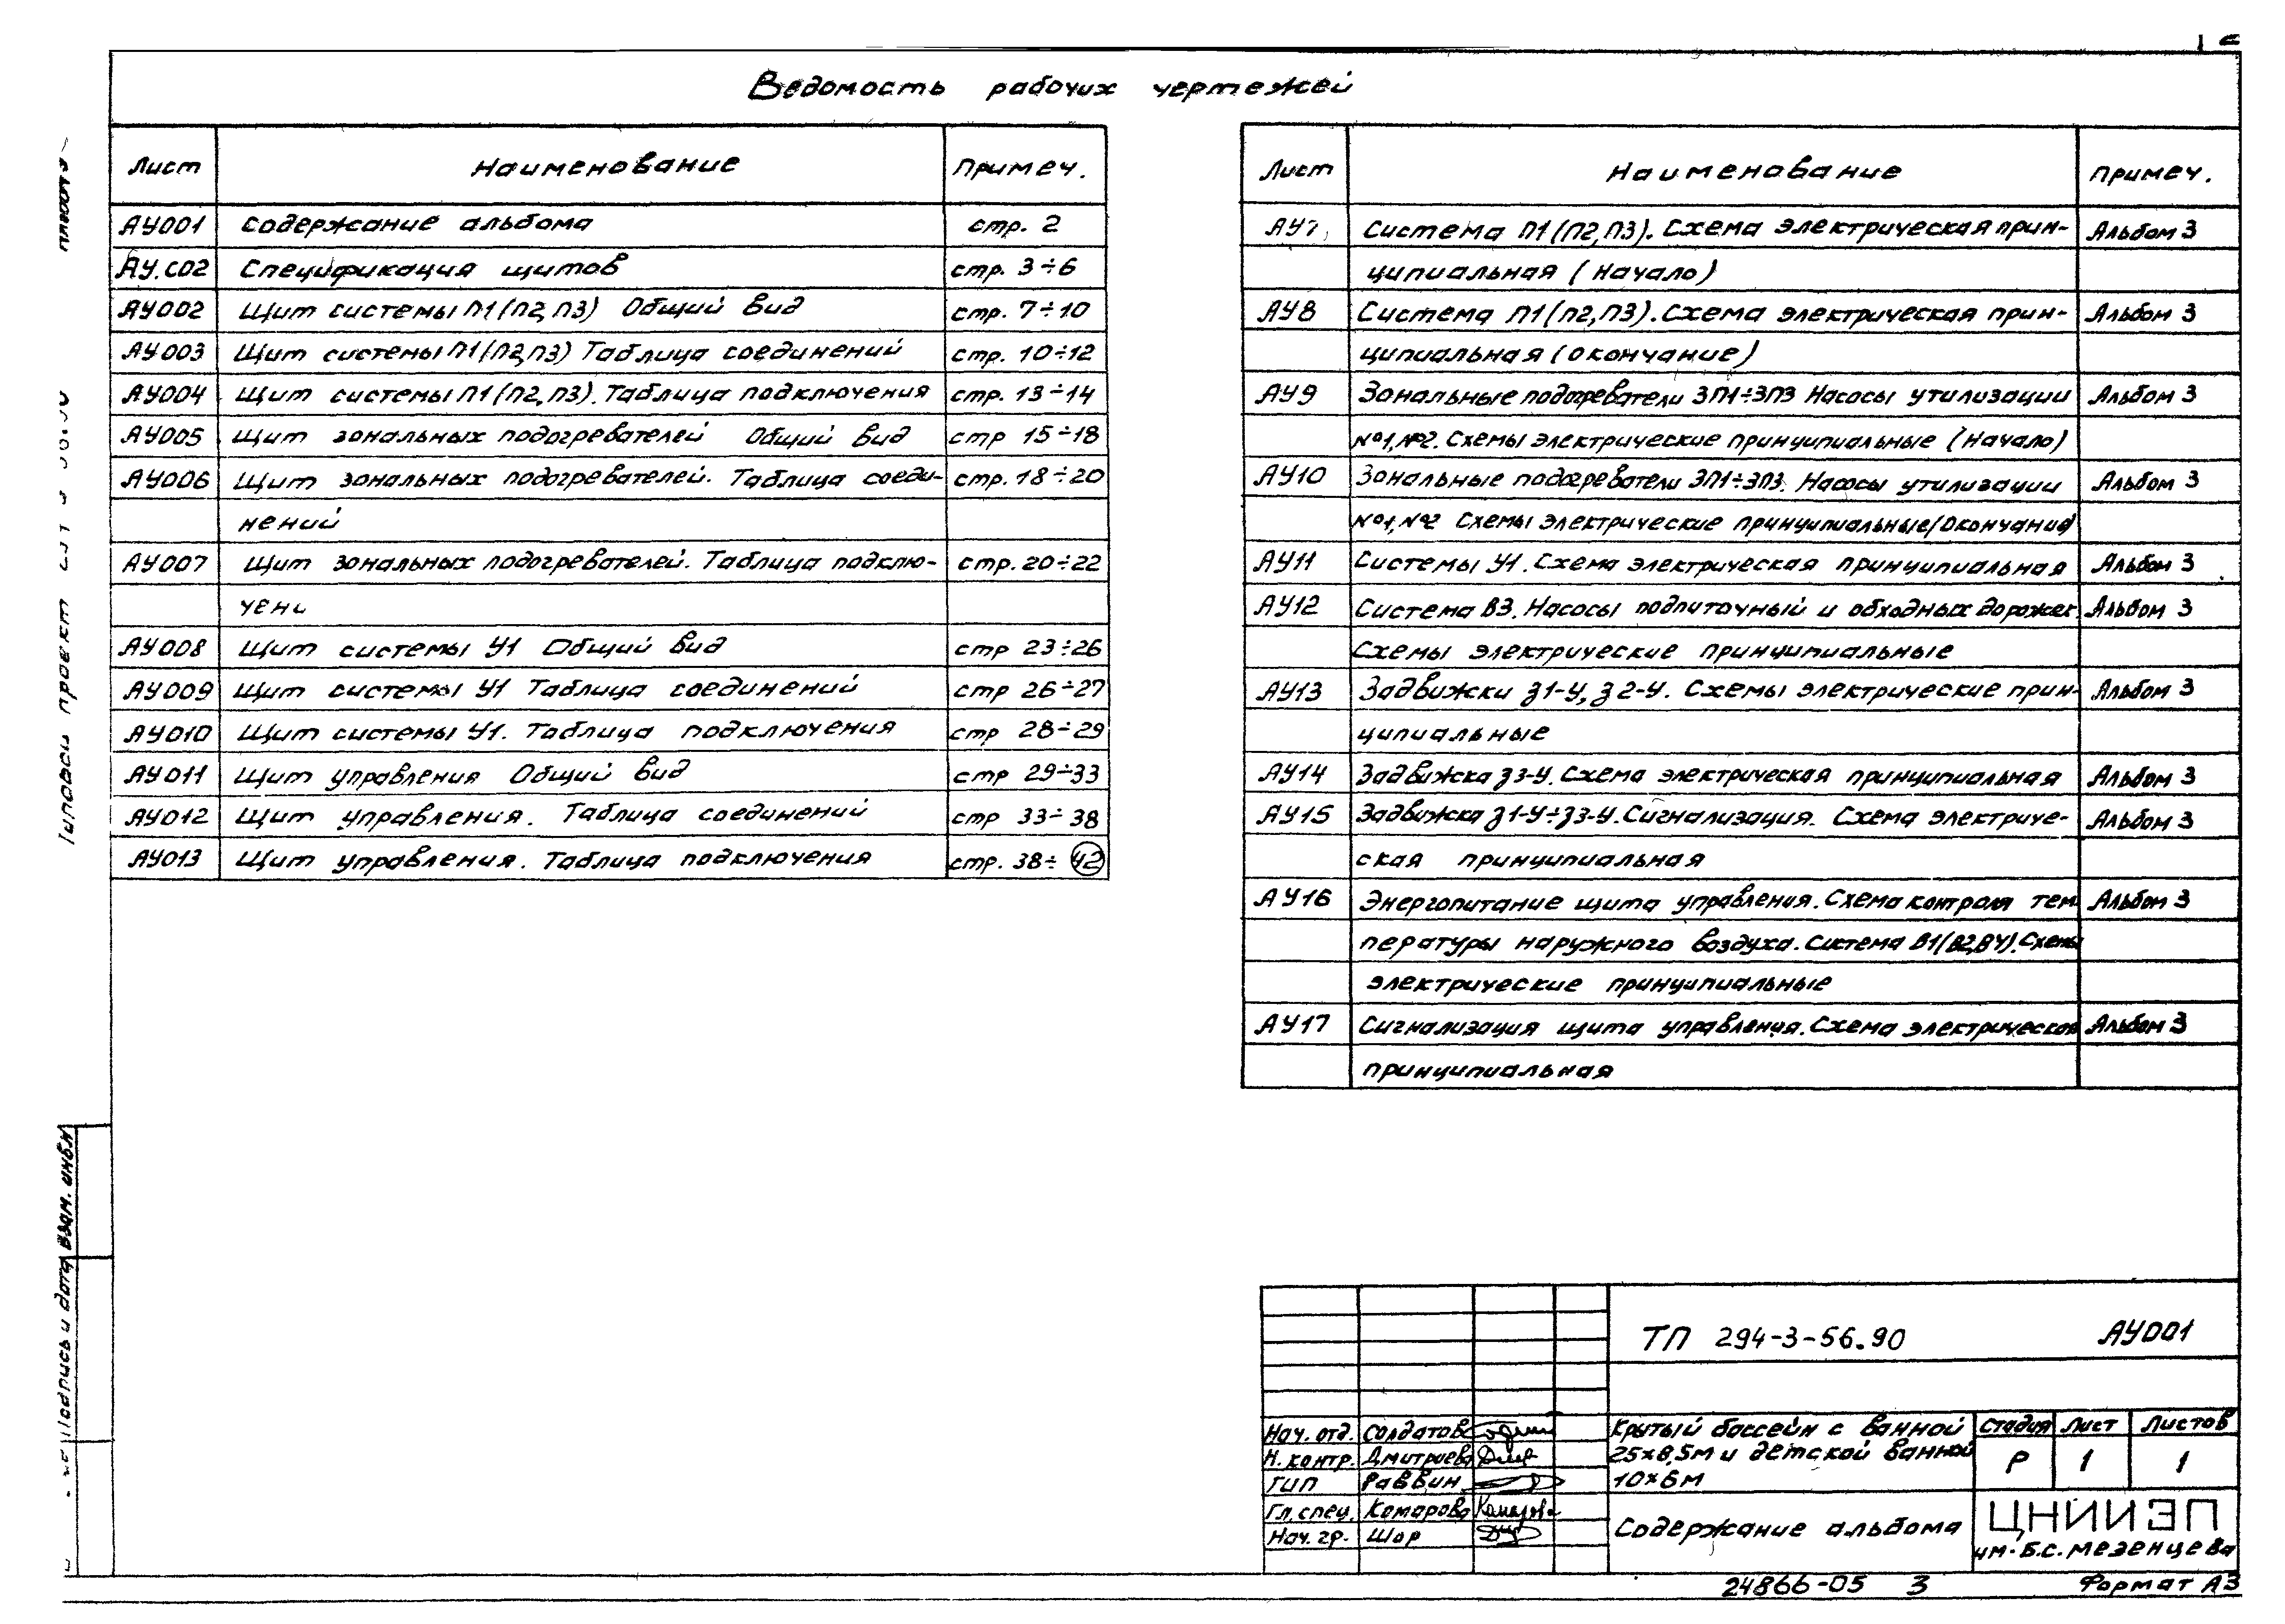 Ведомость рабочих чертежей
Лист Наименование Примеч.
АУ001 Содержание альбома стр. 2
АУ.СО2 Спецификация щитов стр. 3÷6
АУ002 Щит системы П1(П2,П3) Общий вид стр. 7÷10
АУ003 Щит системы П1(П2,П3) Таблица соединений стр. 10÷12
АУ004 Щит системы П1(П2,П3). Таблица подключения стр. 13÷14
АУ005 Щит зональных подогревателей Общий вид стр 15÷18
АУ006 Щит зональных подогревателей. Таблица соеди- стр. 18÷20
нений
АУ007 Щит зональных подогревателей. Таблица подклю- стр. 20÷22
чени
АУ008 Щит системы У1 Общий вид стр 23÷26
АУ009 Щит системы У1 Таблица соединений стр 26÷27
АУ010 Щит системы У1. Таблица подключения стр 28÷29
АУ011 Щит управления Общий вид стр 29÷33
АУ012 Щит управления. Таблица соединений стр 33÷38
АУ013 Щит управления. Таблица подключения стр. 38÷ 42
Лист Наименование Примеч.
АУ7 Система П1(П2,П3). Схема электрическая прин- Альбом 3
ципиальная (Начало)
АУ8 Система П1(П2,П3). Схема электрическая прин- Альбом 3
ципиальная (Окончание)
АУ9 Зональные подогреватели ЗП1÷ЗП3 Насосы утилизации Альбом 3
№1,№2. Схемы электрические принципиальные (Начало)
АУ10 Зональные подогреватели ЗП1÷ЗП3. Насосы утилизации Альбом 3
№1,№2 Схемы электрические принципиальные(Окончание)
АУ11 Системы У1. Схема электрическая принципиальная Альбом 3
АУ12 Система В3. Насосы подпиточный и обходных дорожек. Альбом 3
Схемы электрические принципиальные
АУ13 Задвижки З1-У, З2-У. Схемы электрические прин- Альбом 3
ципиальные
АУ14 Задвижка З3-У. Схема электрическая принципиальная Альбом 3
АУ15 Задвижка З1-У÷З3-У. Сигнализация. Схема электриче- Альбом 3
ская принципиальная
АУ16 Энергопитание щита управления. Схема контроля тем Альбом 3
пературы наружного воздуха. Система В1(В2,В4). Схемы
электрические принципиальные
АУ17 Сигнализация щита управления. Схема электрическая Альбом 3
принципиальная
Взам. инв.н
Подпись и дата
ТП 294-3-56.90 АУ001
Нач. отд. Солдатов
Н. контр. Дмитриева
ГИП Раввин
Гл. спец. Комарова
Нач. гр. Шор
Крытый бассейн с ванной
25×8,5м и детской ванной
10×6м
Стадия Лист Листов
Р 1 1
Содержание альбома
ЦНИИЭП
им. Б.С. Мезенцева
24866-05 3 Формат А3